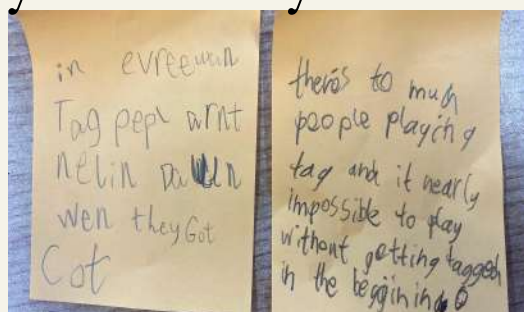 in evreewun
Tag pepl arnt
nelin Dawn
wen they Got
Cot
theres to much
people playing
tag and it nearly
impossible to play
without getting tagged
in the beggining